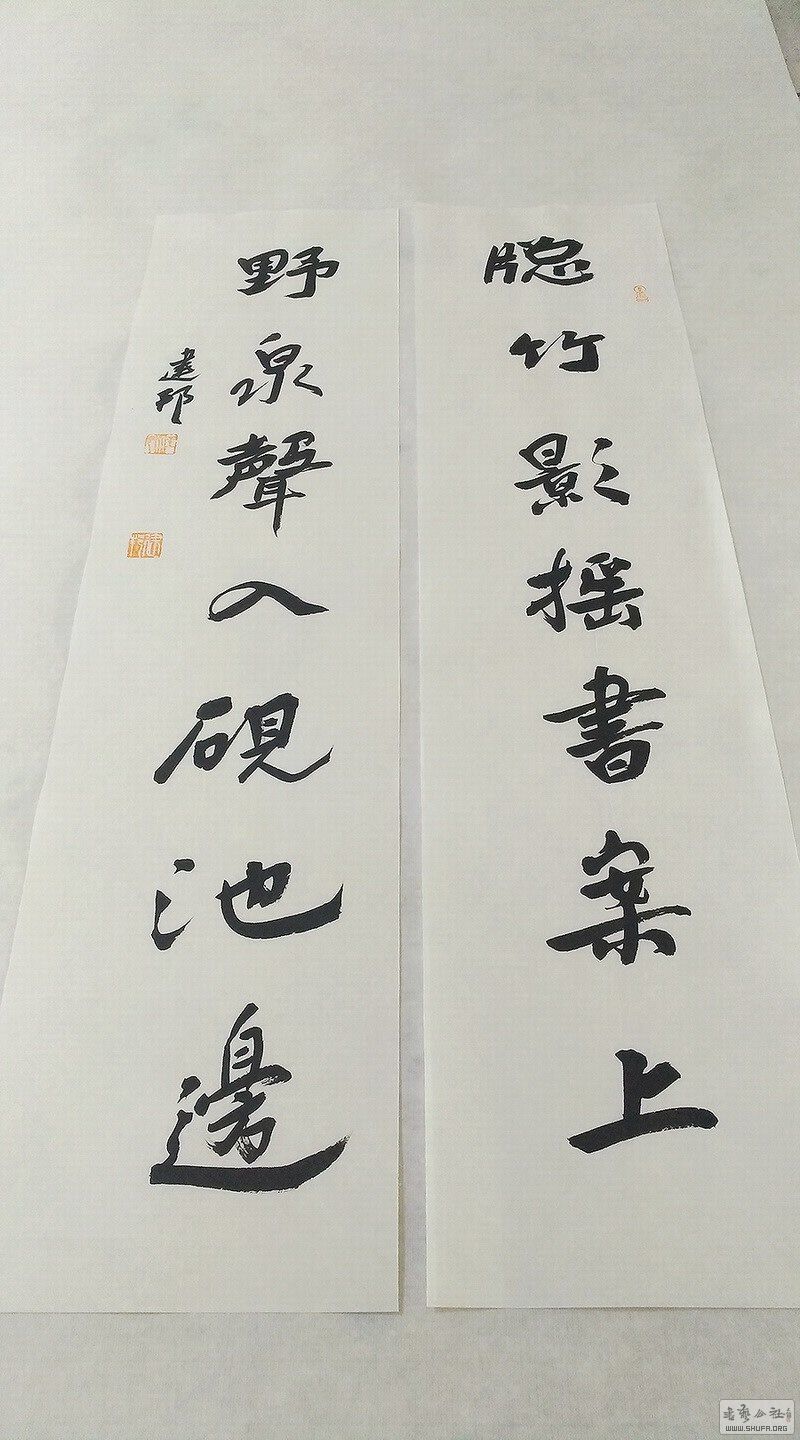 牎竹影摇書案上
野泉聲入硯池邊
建邦
書藝公社
WWW.SHUFA.ORG